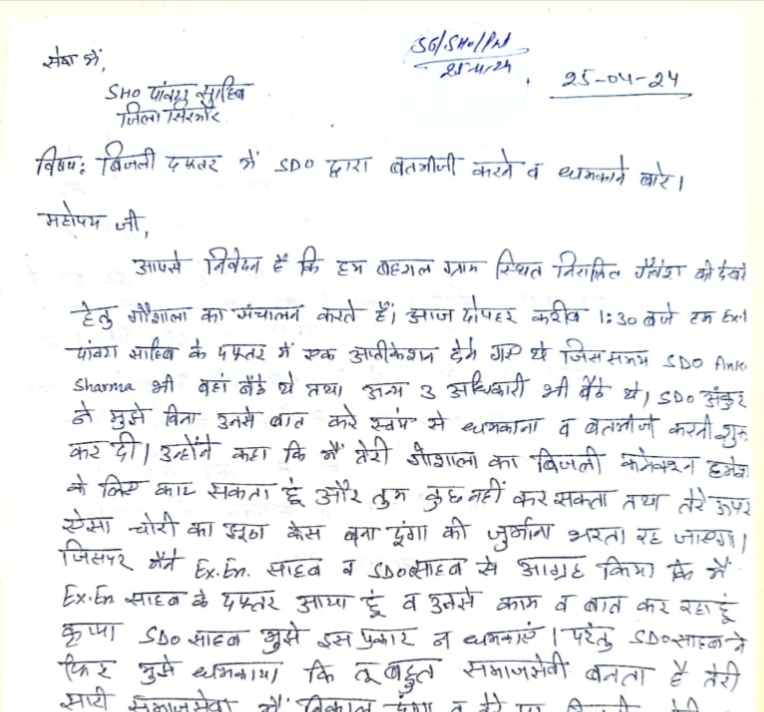 सेवा में,
SHO पांवटा साहिब
जिला सिरमौर
25-4-24
25-04-24
विषय: बिजली दफ्तर में SDO द्वारा बतमीजी करने व धमकाने बारे।
महोदय जी,
आपसे निवेदन है कि हम बहराल ग्राम स्थित निराश्रित गौवंश की देखरे
हेतु गौशाला का संचालन करते हैं। आज दोपहर करीब 1:30 बजे हम Ex.
पांवटा साहिब के दफ्तर में एक आपीकेशन देने गए थे जिस समय SDO Anku
Sharma भी वहां बैठे थे तथा अन्य 3 अधिकारी भी बैठे थे, SDO अंकुर
ने मुझे बिना उनसे बात करे स्वंय से धमकाना व बतमीजी करनी शुरू
कर दी। उन्होंने कहा कि मैं तेरी गौशाला का बिजली कनेक्शन हमेशा
के लिए काट सकता हूं और तुम कुछ नहीं कर सकता तथा तेरे ऊपर
ऐसा चोरी का झूठा केस बना दूंगा की जुर्माना भरता रह जाएगा।
जिसपर मैंने Ex.En. साहब व SDO साहब से आग्रह किया कि मैं
Ex.En साहब के दफ्तर आया हूं व उनसे काम व बात कर रहा हूं
कृपया SDO साहब मुझे इस प्रकार न धमकाएं। परंतु SDO साहब ने
फिर मुझे धमकाया कि तू बहुत समाजसेवी बनता है तेरी
सारी समाजसेवा मैं निकाल दूंगा व तेरे